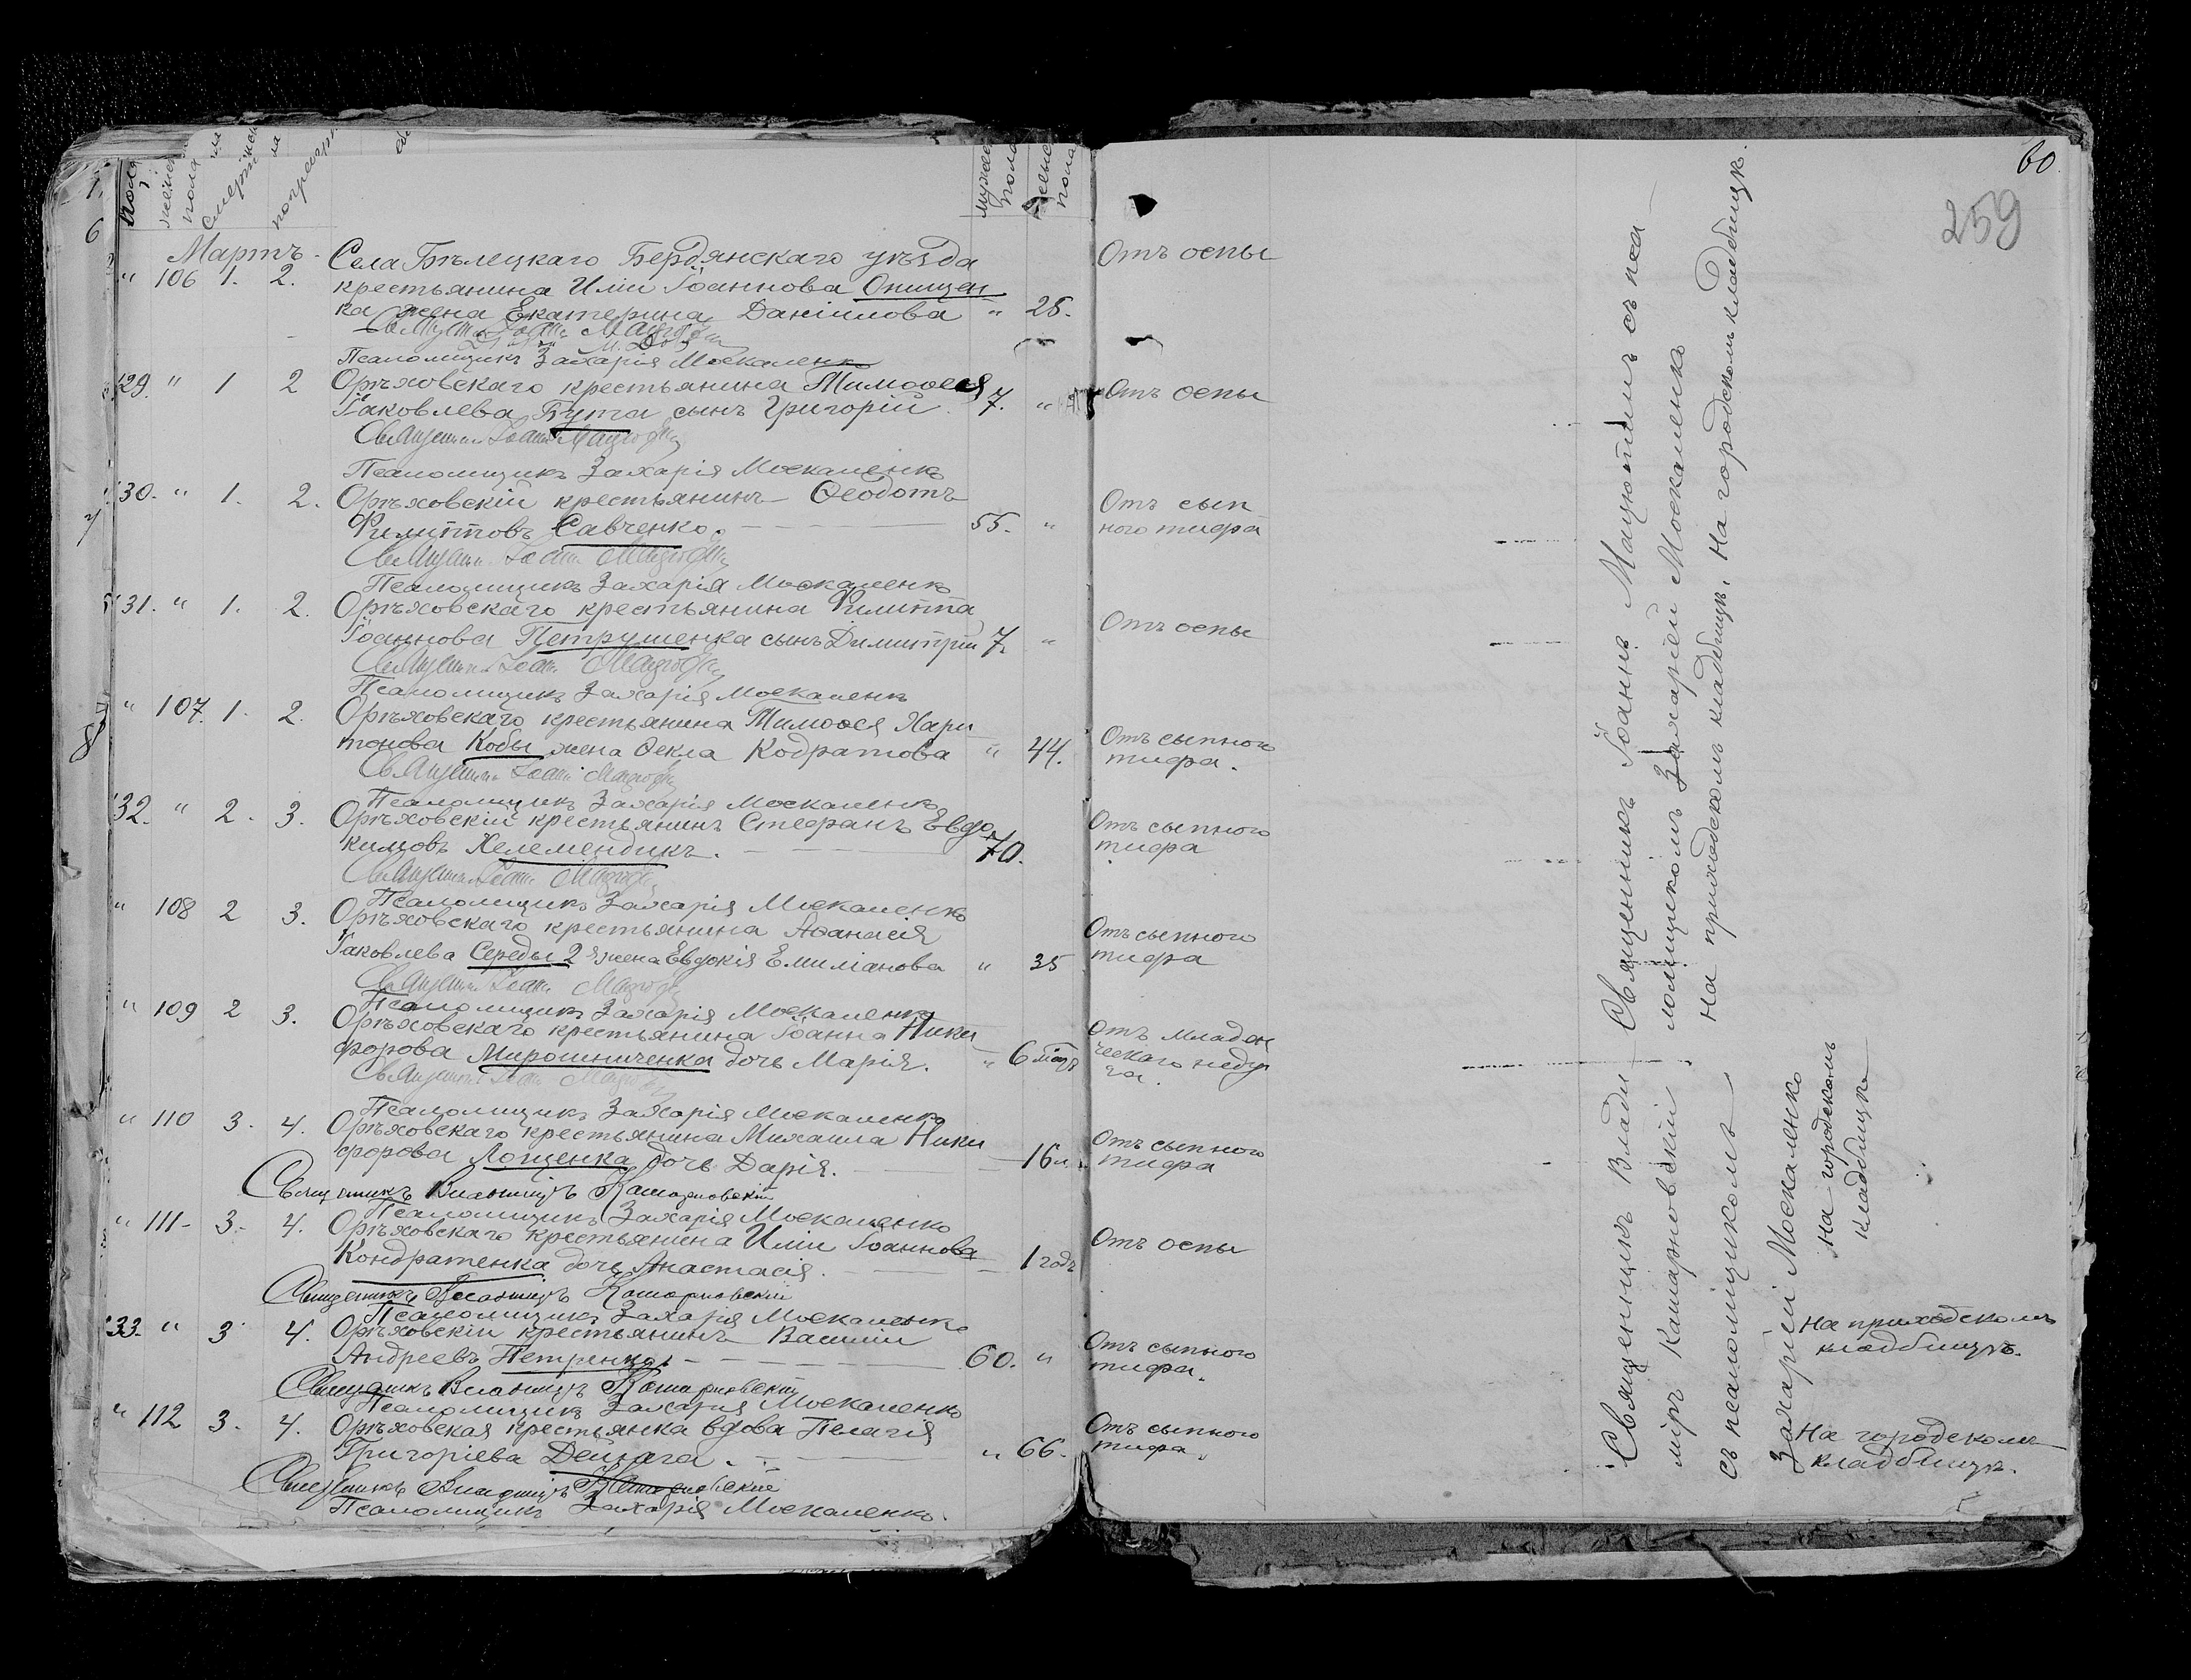 пола
женска
пола
смерти
погреб
мужес
пола
женс
пола
60
259
Мартъ.
" 106 1. 2.
Села Бѣлецкаго Бердянскаго уѣзда
крестьянина Иліи Іоаннова Онищен
ка жена Екатерина Даніилова " 28.
Отъ оспы
Псаломщикъ Захарія Москаленко
129. " 1 2
Орѣховскаго крестьянина Тимоѳея
Іаковлева Бута сынъ Григорій. 7. "
Отъ оспы
Псаломщикъ Захарія Москаленко
130. " 1. 2.
Орѣховскій крестьянинъ Ѳеодотъ
Филипповъ Савченко. 55. "
Отъ сып
ного тифа
Псаломщикъ Захарія Москаленко
131. " 1. 2.
Орѣховскаго крестьянина Филиппа
Іоаннова Петрушенка сынъ Димитрій 7. "
Отъ оспы
Псаломщикъ Захарія Москаленко
" 107. 1. 2.
Орѣховскаго крестьянина Тимоѳея Хари
тонова Кобы жена Ѳекла Кодратова " 44.
Отъ сыпного
тифа.
Псаломщикъ Захарія Москаленко
132. " 2. 3.
Орѣховскій крестьянинъ Стефанъ Евдо
кимовъ Келемендикъ. 70.
Отъ сыпного
тифа
Псаломщикъ Захарія Москаленко
" 108 2 3.
Орѣховскаго крестьянина Аѳанасія
Іаковлева Середы 2 я жена Евдокія Емиліанова " 35
Отъ сыпного
тифа
Псаломщикъ Захарія Москаленко
" 109 2 3.
Орѣховскаго крестьянина Іоанна Ники
форова Мирошниченка дочь Марія. " 6
Отъ младен
ческаго неду
га.
Псаломщикъ Захарія Москаленко
" 110 3. 4.
Орѣховскаго крестьянина Михаила Ники
форова Лощенка дочь Дарія. 16
Отъ сыпного
тифа
Священникъ Владиміръ Катарновскій
Псаломщикъ Захарія Москаленко
" 111 3. 4.
Орѣховскаго крестьянина Иліи Іоаннова
Кондратенка дочь Анастасія. 1 годъ
Отъ оспы
Священникъ Владиміръ Катарновскій
Псаломщикъ Захарія Москаленко
133. " 3 4.
Орѣховскій крестьянинъ Василій
Андреевъ Петренко. 60. "
Отъ сыпного
тифа.
Священникъ Владиміръ Катарновскій
Псаломщикъ Захарія Москаленко
" 112 3. 4.
Орѣховская крестьянка вдова Пелагія
Григоріева Дейнага. " 66.
Отъ сыпного
тифа.
Священникъ Владиміръ Катарновскій
Псаломщикъ Захарія Москаленко.
Священникъ Іоаннъ Мацютинъ съ пса
ломщикомъ Захаріей Москаленко
На приходскомъ кладбищѣ. На городскомъ кладбищѣ.
Священникъ Влади
міръ Катарновскій
съ псаломщикомъ
Захаріей Москаленко
На городскомъ
кладбищѣ
На приходскомъ
кладбищѣ.
На городскомъ
кладбищѣ.